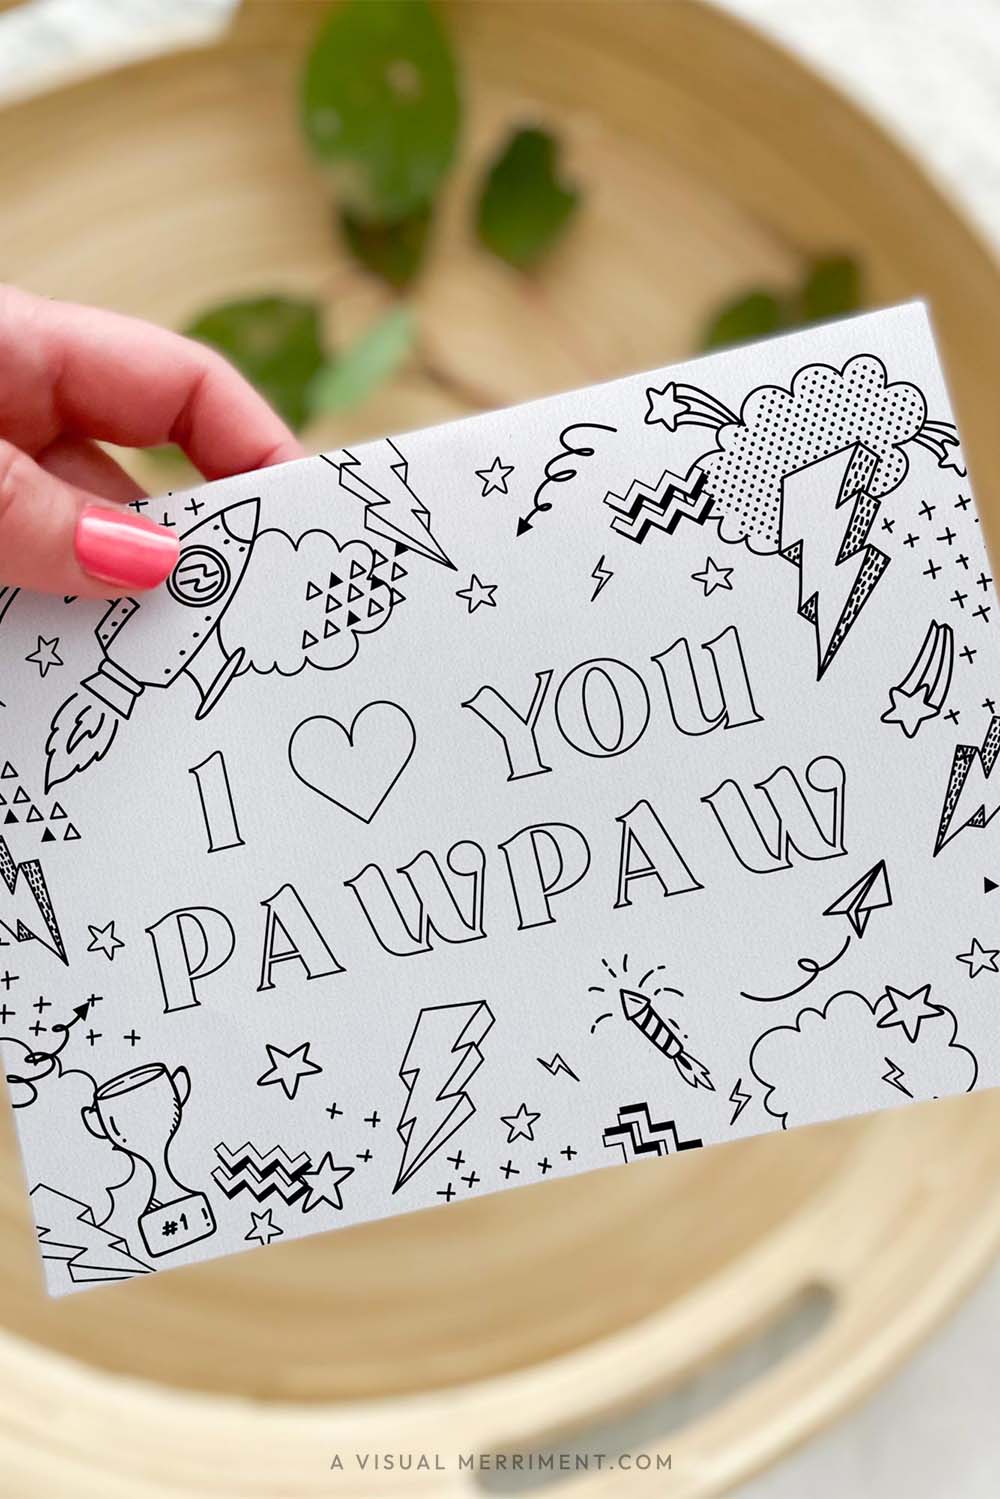 I ♡ YOU
PAWPAW
#1
A VISUAL MERRIMENT.COM